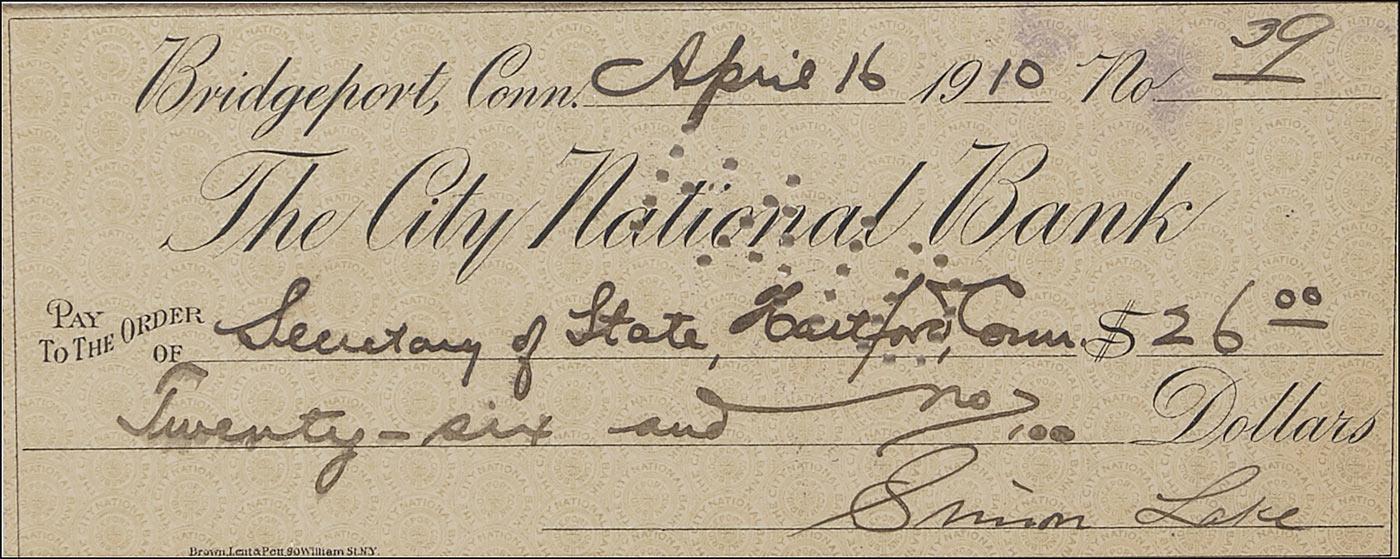 Bridgeport, Conn. April 16 1910 No 39
The City National Bank
PAY TO THE ORDER OF Secretary of State, Hartford, Conn. $26.00
Twenty-six and no/100 Dollars
Simon Lake
Brown, Lent & Pett, 90 William St. N.Y.